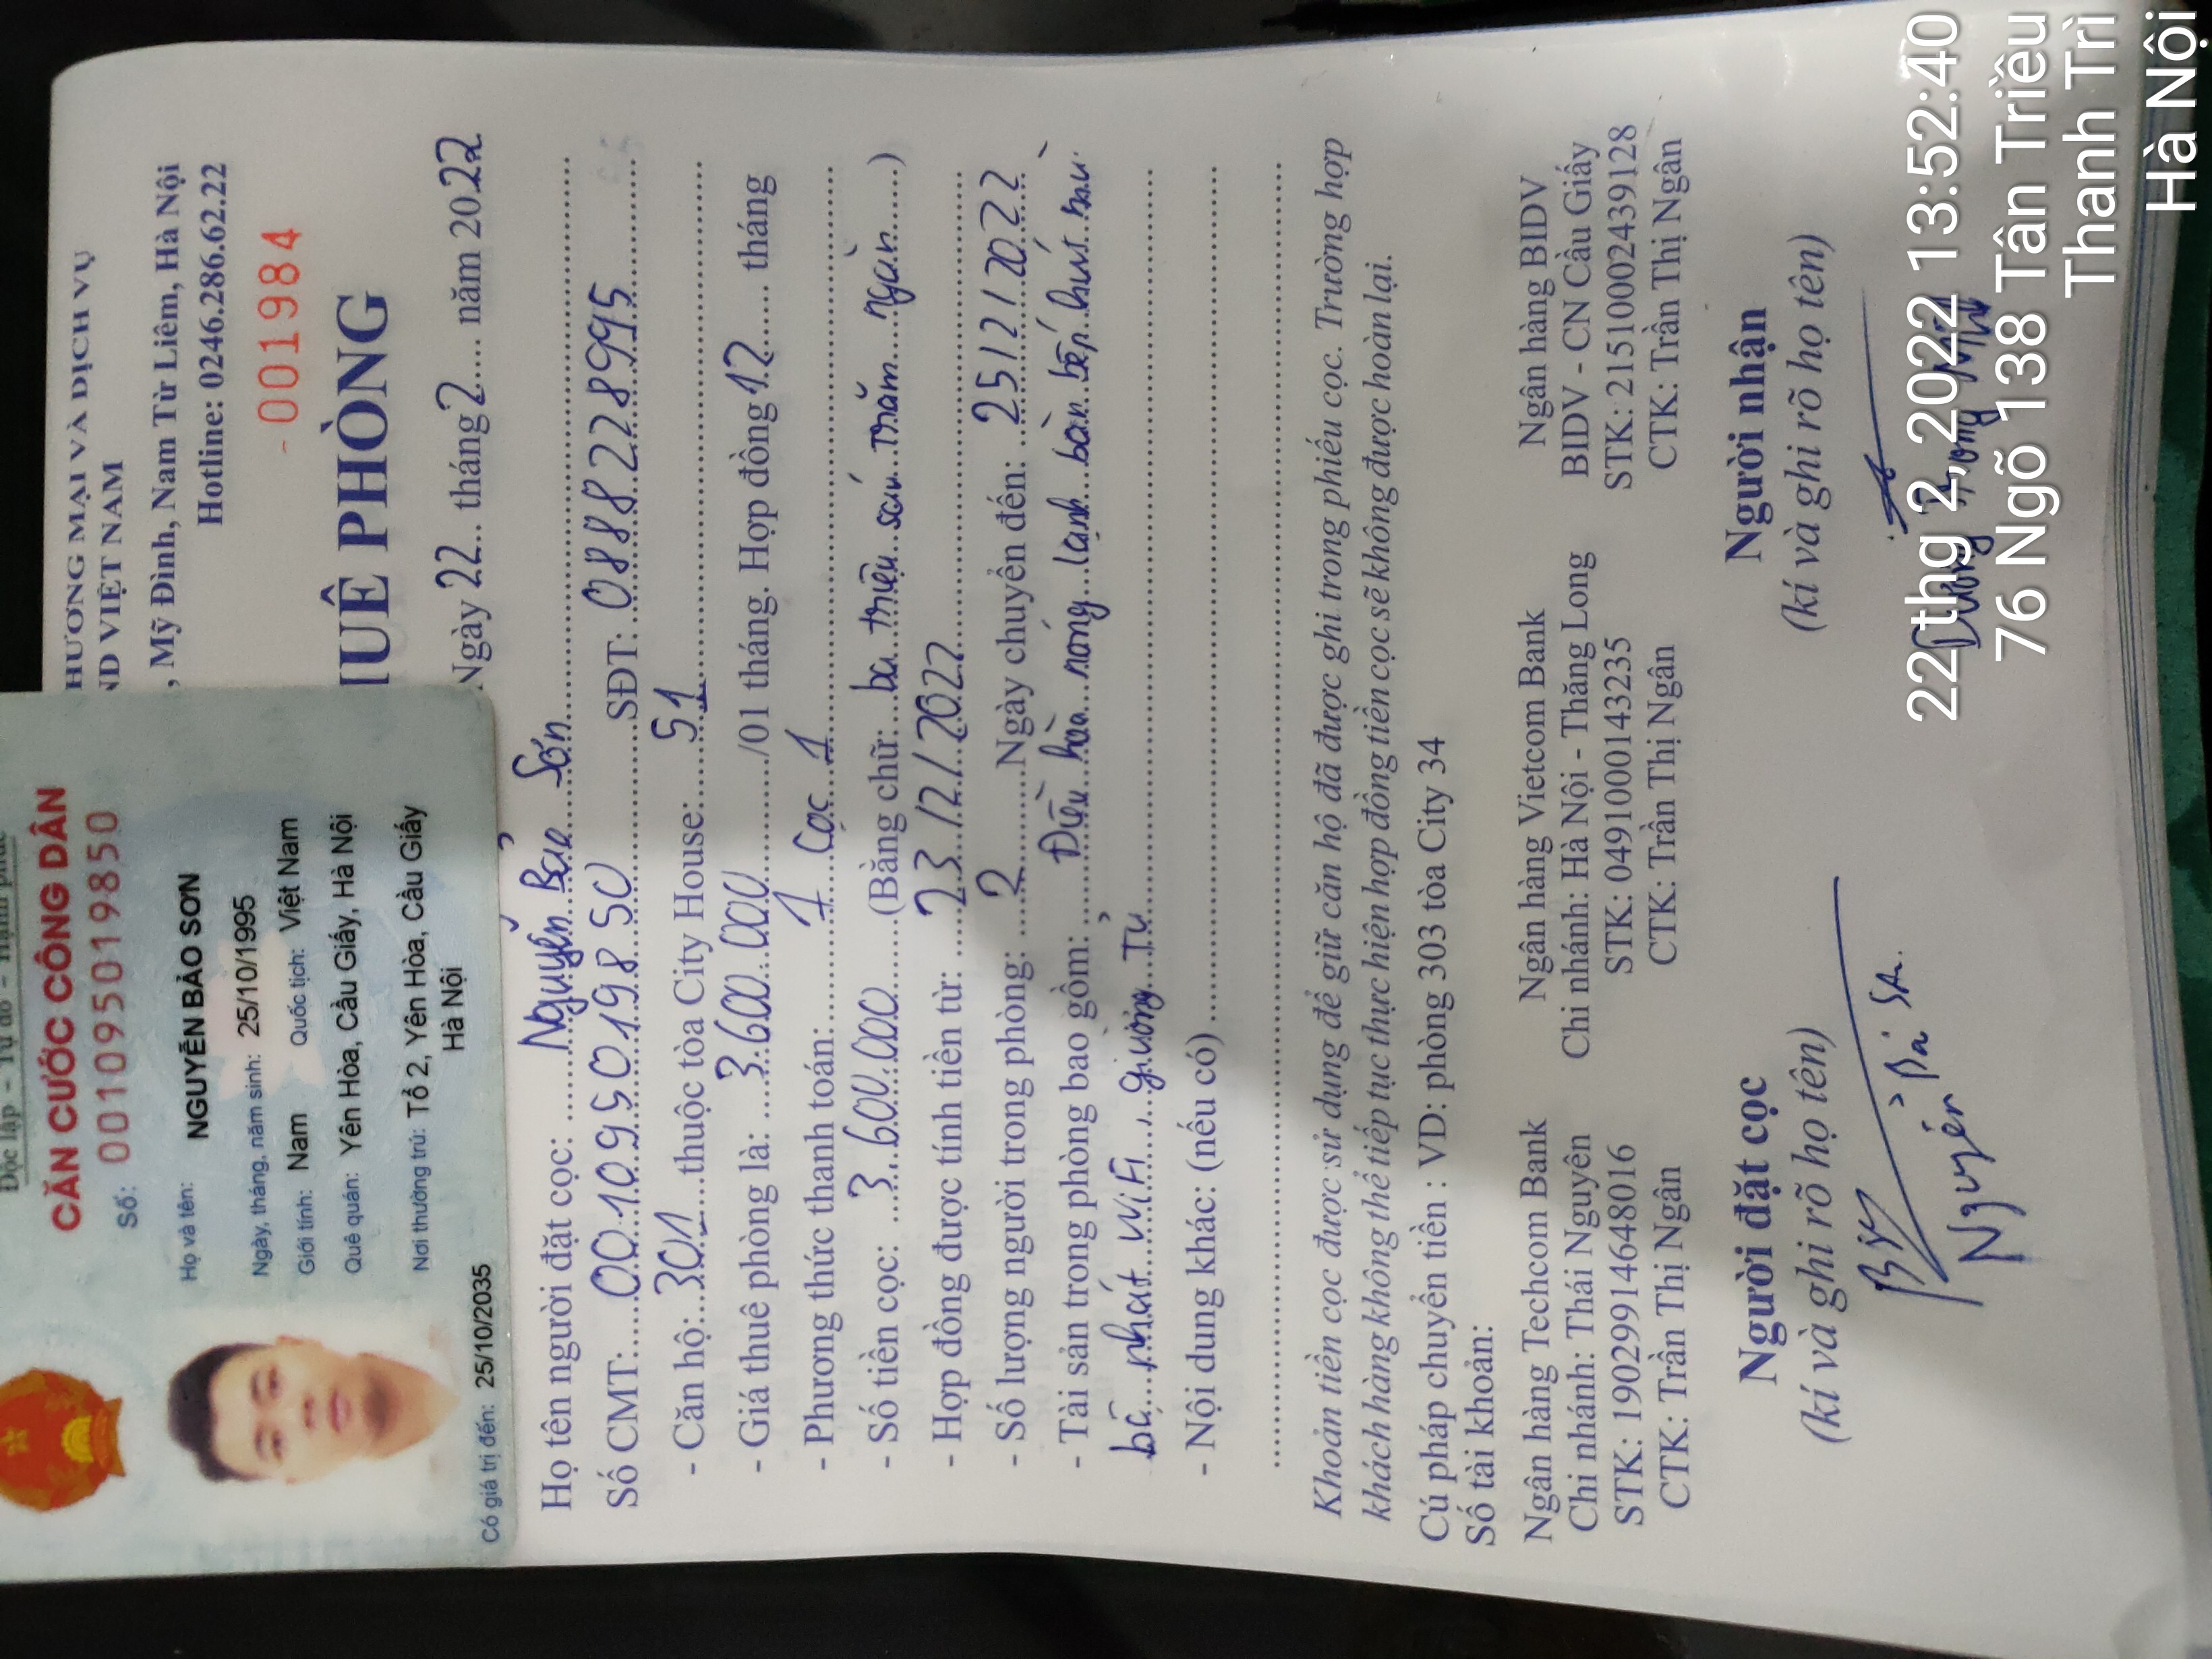 Độc lập - Tự do - Hạnh phúc
CĂN CƯỚC CÔNG DÂN
Số: 001095019850
Họ và tên:
NGUYỄN BẢO SƠN
Ngày, tháng, năm sinh: 25/10/1995
Giới tính: Nam Quốc tịch: Việt Nam
Quê quán: Yên Hòa, Cầu Giấy, Hà Nội
Nơi thường trú: Tổ 2, Yên Hòa, Cầu Giấy
Hà Nội
Có giá trị đến: 25/10/2035
HƯƠNG MẠI VÀ DỊCH VỤ
ND VIỆT NAM
, Mỹ Đình, Nam Từ Liêm, Hà Nội
Hotline: 0246.286.62.22
001984
HUÊ PHÒNG
Ngày 22 tháng 2 năm 2022
Họ tên người đặt cọc: Nguyễn Bảo Sơn
Số CMT: 001095019850 SĐT: 0888228995
- Căn hộ: 301 thuộc tòa City House: 51
- Giá thuê phòng là: 3.600.000 /01 tháng. Hợp đồng 12 tháng
- Phương thức thanh toán: 1 Cọc 1
- Số tiền cọc: 3.600.000 (Bằng chữ: ba triệu sáu trăm ngàn)
- Hợp đồng được tính tiền từ: 23/2/2022
- Số lượng người trong phòng: 2 Ngày chuyển đến: 25/2/2022
- Tài sản trong phòng bao gồm: Điều hòa nóng lạnh bàn bếp hút mùi
bộ phát WiFi, giường Tủ
- Nội dung khác: (nếu có)
Khoản tiền cọc được sử dụng để giữ căn hộ đã được ghi trong phiếu cọc. Trường hợp
khách hàng không thể tiếp tục thực hiện hợp đồng tiền cọc sẽ không được hoàn lại.
Cú pháp chuyển tiền : VD: phòng 303 tòa City 34
Số tài khoản:
Ngân hàng Techcom Bank
Chi nhánh: Thái Nguyên
STK: 19029914648016
CTK: Trần Thị Ngân
Ngân hàng Vietcom Bank
Chi nhánh: Hà Nội - Thăng Long
STK: 0491000143235
CTK: Trần Thị Ngân
Ngân hàng BIDV
BIDV - CN Cầu Giấy
STK: 21510002439128
CTK: Trần Thị Ngân
Người đặt cọc
(kí và ghi rõ họ tên)
Nguyễn Bảo Sơn
Người nhận
(kí và ghi rõ họ tên)
22 thg 2, 2022 13:52:40
76 Ngõ 138 Tân Triều
Thanh Trì
Hà Nội